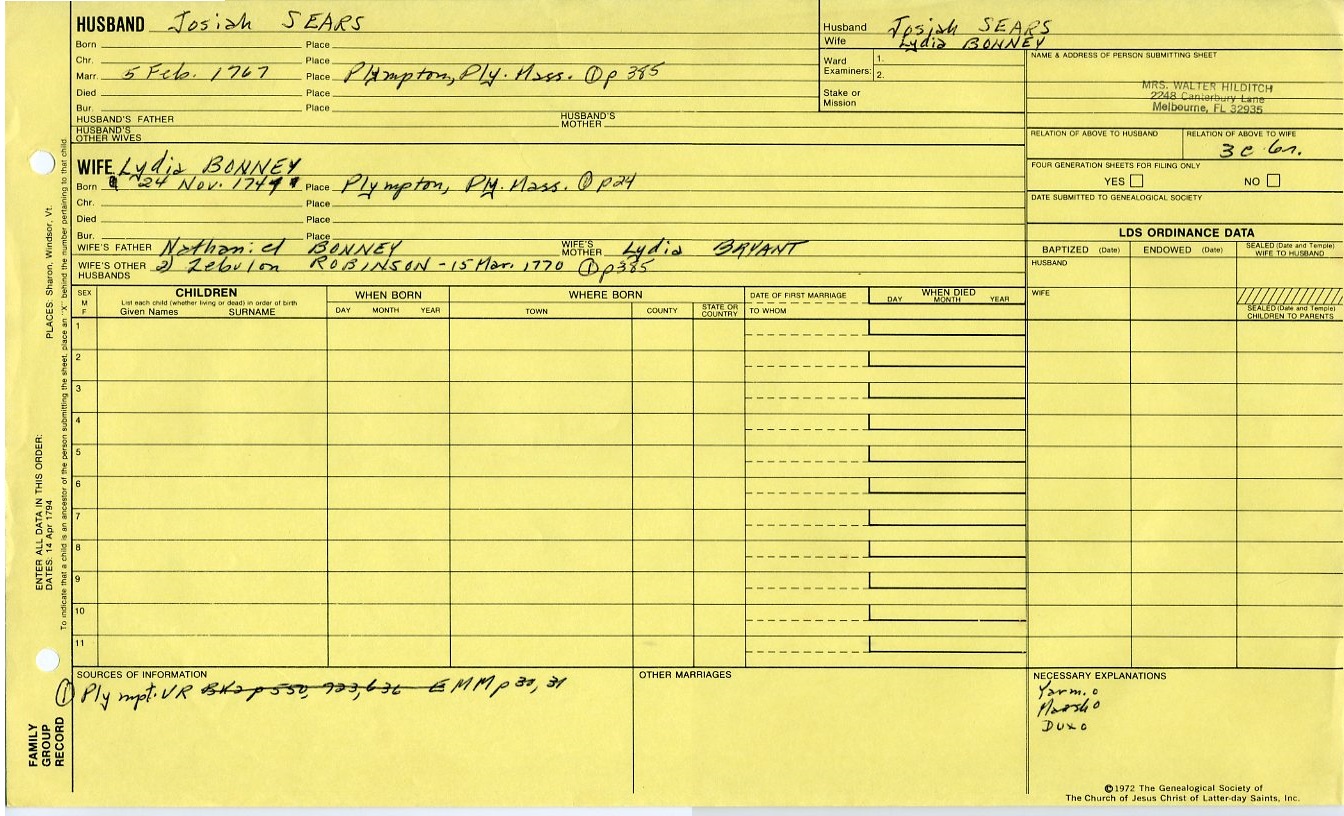 HUSBAND Josiah SEARS
Born Place
Chr. Place
Marr. 5 Feb. 1767 Place Plympton, Ply. Mass. ① p 385
Died Place
Bur. Place
HUSBAND'S FATHER HUSBAND'S MOTHER
HUSBAND'S OTHER WIVES
Husband Josiah SEARS
Wife Lydia BONNEY
Ward 1.
Examiners: 2.
Stake or
Mission
NAME & ADDRESS OF PERSON SUBMITTING SHEET
MRS. WALTER HILDITCH
2248 Canterbury Lane
Melbourne, FL 32935
RELATION OF ABOVE TO HUSBAND RELATION OF ABOVE TO WIFE
3 c 6r.
FOUR GENERATION SHEETS FOR FILING ONLY
YES NO
DATE SUBMITTED TO GENEALOGICAL SOCIETY
WIFE Lydia BONNEY
Born 24 Nov. 174 Place Plympton, Ply. Mass. ① p24
Chr. Place
Died Place
Bur. Place
WIFE'S FATHER Nathaniel BONNEY WIFE'S MOTHER Lydia BRYANT
WIFE'S OTHER HUSBANDS 2) Zebulon ROBINSON - 15 Mar. 1770 ① p385
LDS ORDINANCE DATA
BAPTIZED (Date) ENDOWED (Date) SEALED (Date and Temple) WIFE TO HUSBAND
HUSBAND
WIFE
SEALED (Date and Temple) CHILDREN TO PARENTS
SEX M F
CHILDREN WHEN BORN WHERE BORN DATE OF FIRST MARRIAGE WHEN DIED
List each child (whether living or dead) in order of birth
Given Names SURNAME DAY MONTH YEAR TOWN COUNTY STATE OR COUNTRY TO WHOM DAY MONTH YEAR
1
2
3
4
5
6
7
8
9
10
11
SOURCES OF INFORMATION
① Plympt. VR BK2 p 550, 923, 636 EMM p 30, 31
OTHER MARRIAGES
NECESSARY EXPLANATIONS
Yarm. o
Marsh o
Dux o
©1972 The Genealogical Society of
The Church of Jesus Christ of Latter-day Saints, Inc.
FAMILY
GROUP
RECORD
ENTER ALL DATA IN THIS ORDER:
DATES: 14 Apr 1794 PLACES: Sharon, Windsor, Vt.
To indicate that a child is an ancestor of the person submitting the sheet, place an "X" behind the number pertaining to that child.